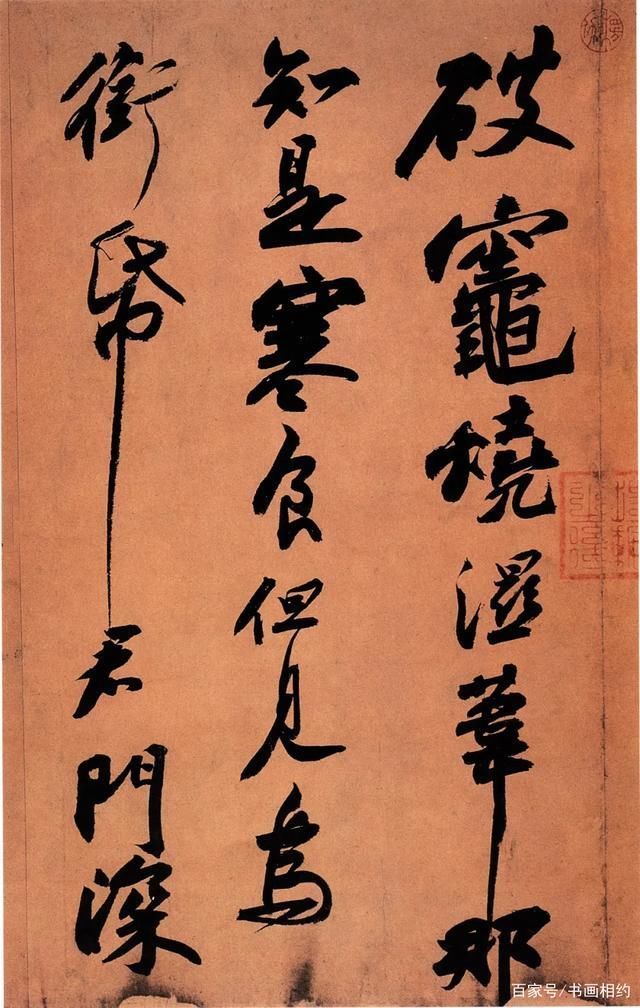 破竈燒濕葦那
知是寒食但見烏
銜帋君門深
百家号/书画相约